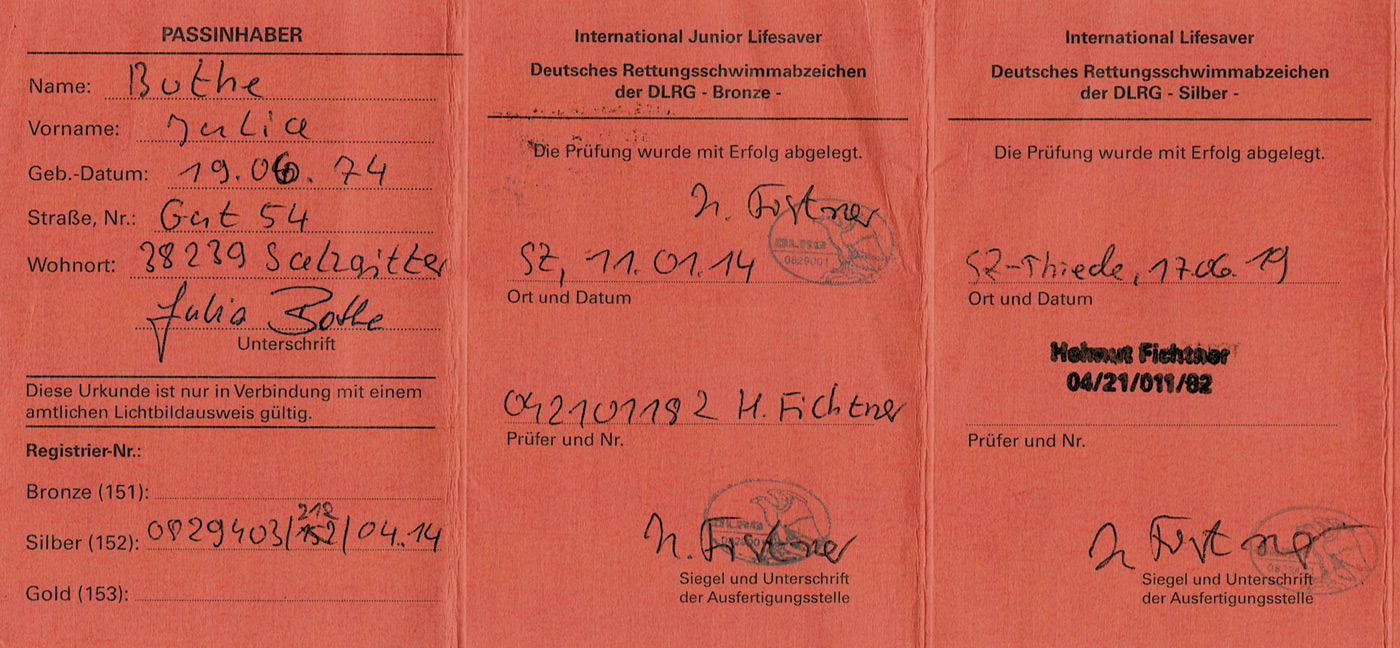 PASSINHABER
Name: Bothe
Vorname: Julia
Geb.-Datum: 19.06.74
Straße, Nr.: Gut 54
Wohnort: 38239 Salzgitter
Julia Bothe
Unterschrift
Diese Urkunde ist nur in Verbindung mit einem
amtlichen Lichtbildausweis gültig.
Registrier-Nr.:
Bronze (151):
212
Silber (152): 0829403/152/04.14
Gold (153):
International Junior Lifesaver
Deutsches Rettungsschwimmabzeichen
der DLRG - Bronze -
Die Prüfung wurde mit Erfolg abgelegt.
H. Fichtner
SZ, 11.01.14
0829001
Ort und Datum
042101182 H. Fichtner
Prüfer und Nr.
H. Fichtner
Siegel und Unterschrift
der Ausfertigungsstelle
International Lifesaver
Deutsches Rettungsschwimmabzeichen
der DLRG - Silber -
Die Prüfung wurde mit Erfolg abgelegt.
SZ-Thiede, 17.06.19
Ort und Datum
Helmut Fichtner
04/21/011/82
Prüfer und Nr.
H. Fichtner
Siegel und Unterschrift
der Ausfertigungsstelle